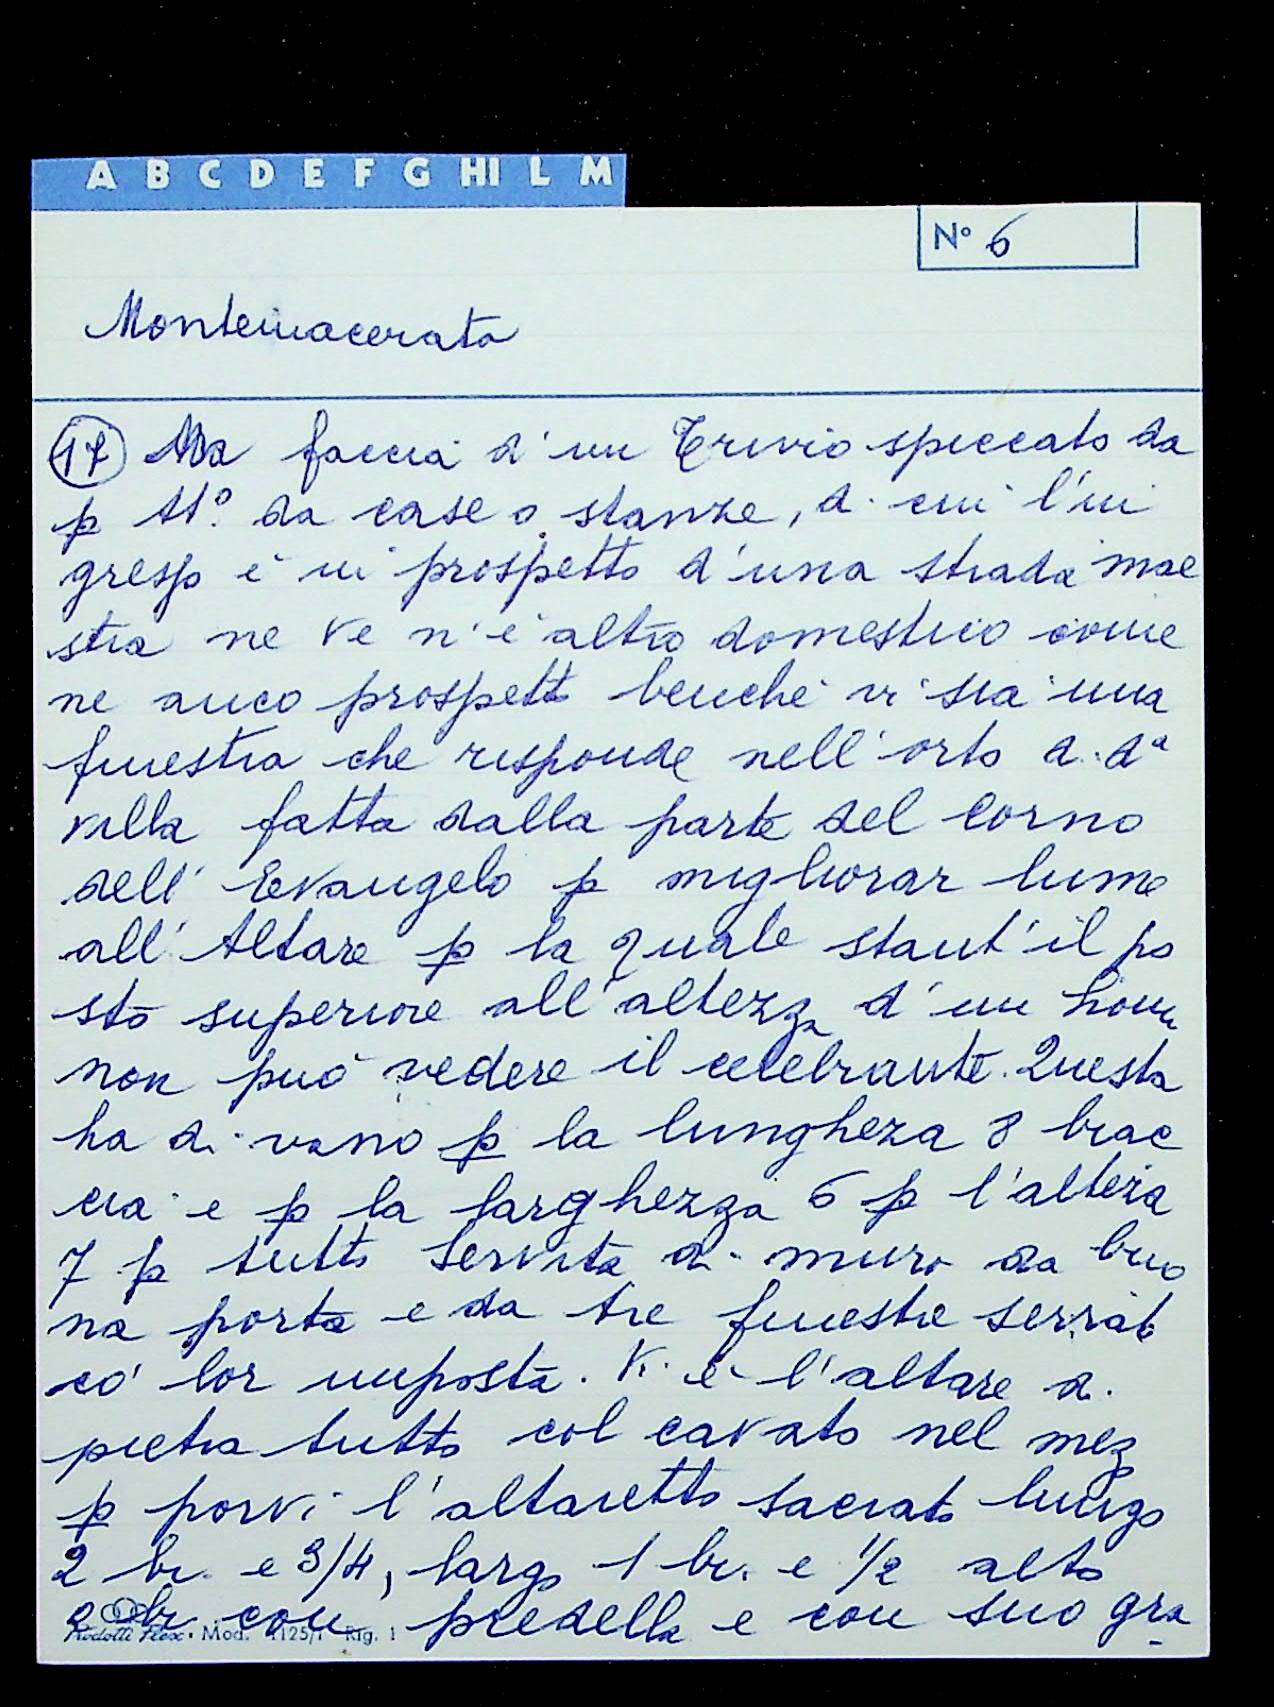 A B C D E F G HI L M
N° 6
Montemacerato
17 Alla faccia d'un Trivio spiccato da
p tt° da case o stanze, di cui l'in
gresso è in prospetto d'una strada mae
stra ne ve n'è altro domestico come
ne anco prospetto benchè vi sia una
finestra che risponde nell'orto di da
villa fatta dalla parte del corno
dell' Evangelo p migliorar lume
all' Altare p la quale stant'il po
sto superiore all'altezza d'un hom
non può vedere il celebrante. Questa
ha di vano p la lungheza 8 brac
cia e p la larghezza 6 p l'alteza
7 p tutto servita di muro da buo
na porta e da tre finestre serrate
co' lor imposta. Vi è l'altare di
pietra tutto col cavato nel mez
p porvi l'altaretto sacrato lungo
2 br. e 3/4, largo 1 br. e 1/2 alto
2 br con predella e con suo gra
Rodotti Flex • Mod. 1125/1 Rig. 1